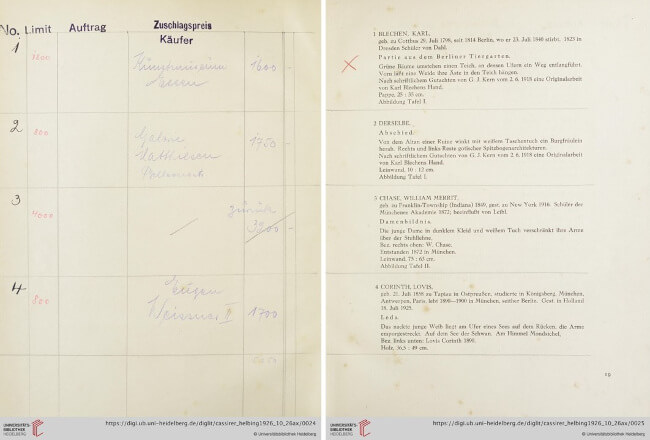 No. Limit Auftrag Zuschlagspreis
Käufer
1 1600 -
2 800 Galerie 1750 -
3 4000 zurück
3200 -
4 800 Eugen
1700 -
https://digi.ub.uni-heidelberg.de/diglit/cassirer_helbing1926_10_26ax/0024
© Universitätsbibliothek Heidelberg
UNIVERSITÄTS-
BIBLIOTHEK
HEIDELBERG
1 BLECHEN, KARL.
geb. zu Cottbus 29. Juli 1798, seit 1814 Berlin, wo er 23. Juli 1840 stirbt. 1823 in
Dresden Schüler von Dahl.
Partie aus dem Berliner Tiergarten.
Grüne Bäume umstehen einen Teich, an dessen Ufern ein Weg entlangführt.
Vorn läßt eine Weide ihre Äste in den Teich hängen.
Nach schriftlichem Gutachten von G. J. Kern vom 2. 6. 1918 eine Originalarbeit
von Karl Blechens Hand.
Pappe, 25 : 35 cm.
Abbildung Tafel I.
2 DERSELBE.
Abschied.
Von dem Altan einer Ruine winkt mit weißem Taschentuch ein Burgfräulein
herab. Rechts und links Reste gotischer Spitzbogenarchitekturen.
Nach schriftlichem Gutachten von G. J. Kern vom 2. 6. 1918 eine Originalarbeit
von Karl Blechens Hand.
Leinwand, 10 : 12 cm.
Abbildung Tafel I.
3 CHASE, WILLIAM MERRIT.
geb. zu Franklin-Township (Indiana) 1849, gest. zu New York 1916. Schüler der
Münchener Akademie 1872; beeinflußt von Leibl.
Damenbildnis.
Die junge Dame in dunklem Kleid und weißem Tuch verschränkt ihre Arme
über der Stuhllehne.
Bez. rechts oben: W. Chase.
Entstanden 1872 in München.
Leinwand, 73 : 63 cm.
Abbildung Tafel II.
4 CORINTH, LOVIS,
geb. 21. Juli 1858 zu Tapiau in Ostpreußen, studierte in Königsberg, München,
Antwerpen, Paris, lebt 1890—1900 in München, seither Berlin. Gest. in Holland
18. Juli 1925.
Leda.
Das nackte junge Weib liegt am Ufer eines Sees auf dem Rücken, die Arme
ausgestreckt. Auf dem See der Schwan. Am Himmel Mondsichel.
Bez. links unten: Lovis Corinth 1890.
Holz, 36,5 : 49 cm.
https://digi.ub.uni-heidelberg.de/diglit/cassirer_helbing1926_10_26ax/0025
© Universitätsbibliothek Heidelberg
UNIVERSITÄTS-
BIBLIOTHEK
HEIDELBERG